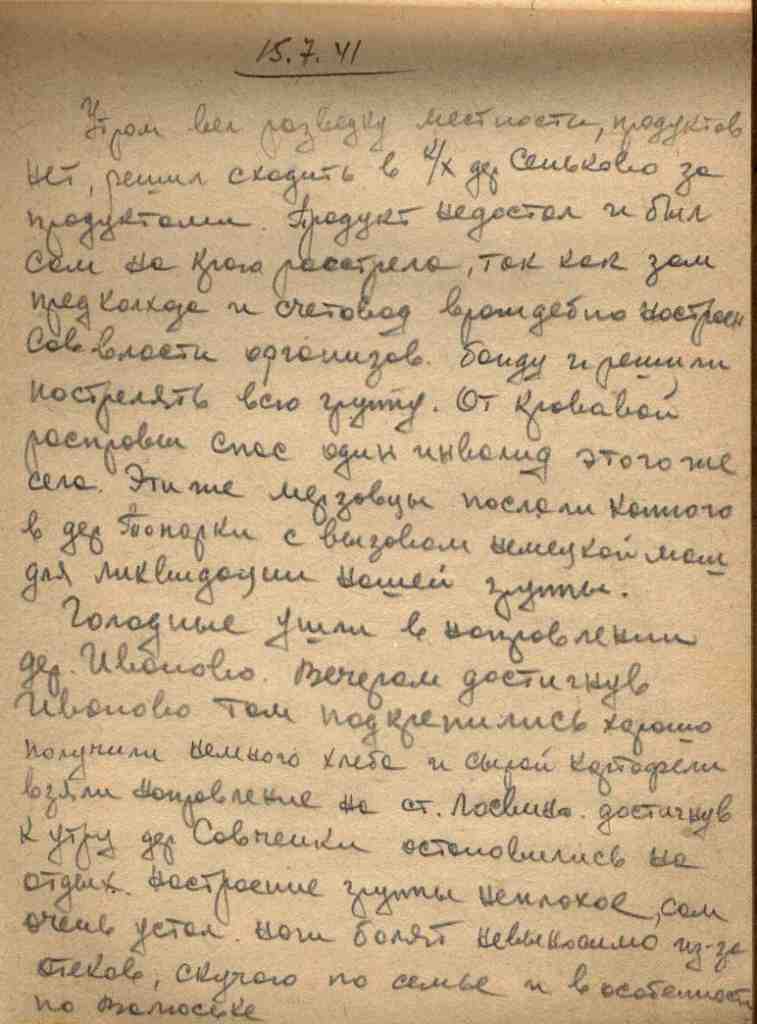 15.7.41
Утром вел разведку местности, продуктов
нет, решил сходить в к/х дер Сеньково за
продуктами. Продукт недостал и был
сам на краю расстрела, так как зам
пред колхоза и счетовод враждебно настроен
Сов власти организов. банду и решили
пострелять всю группу. От кровавой
расправы спас один инвалид этого же
села. Эти же мерзовцы послали конного
в дер Топорки с вызовом немецкой маш
для ликвидации нашей группы.
Голодные ушли в направлении
дер. Иваново. Вечером достигнув
Иваново там подкрепились хорошо
получили немного хлеба и сырой картофели
взяли направление на ст. достигнув
к утру дер Савченки остановились на
отдых. Настроение группы неплохое, сам
очень устал. Ноги болят невыносимо из-за
отеков, скучаю по семье и в особенности
по Валюське